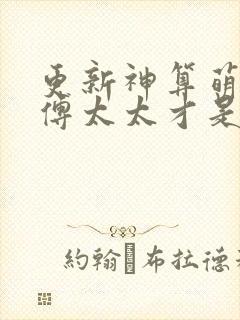 更新神算萌
傅太太才是
約翰 布拉德